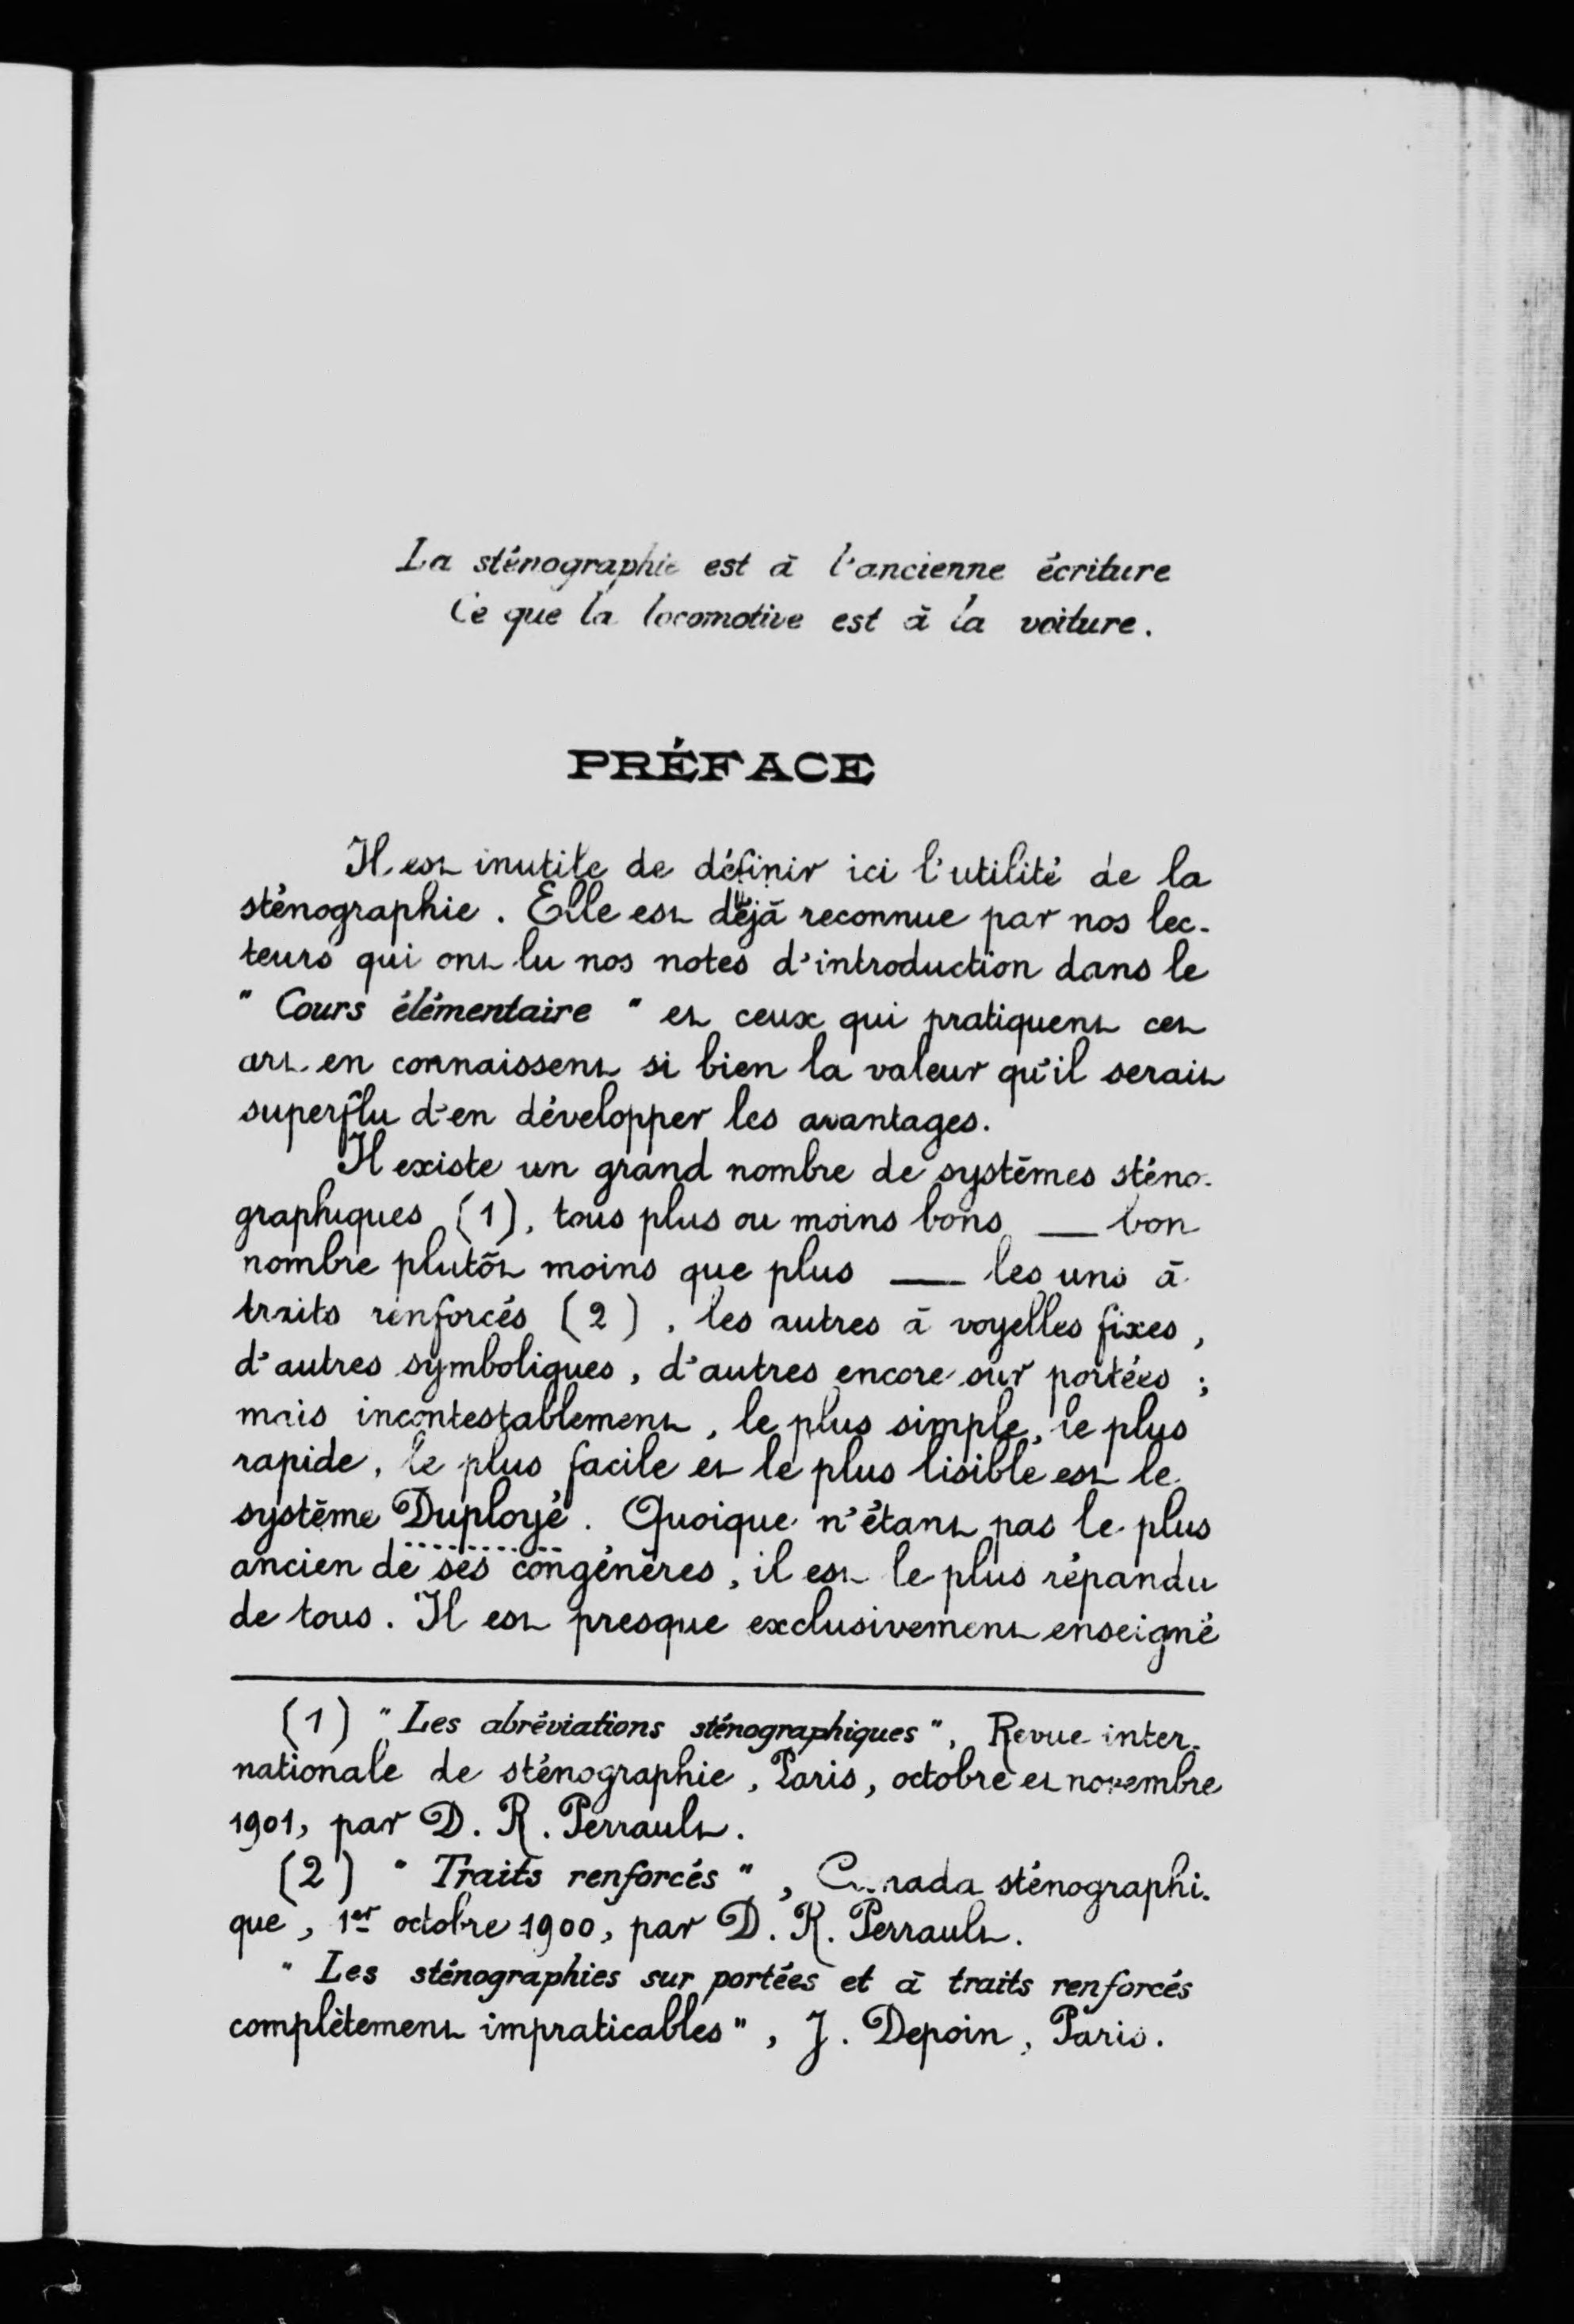 La sténographie est à l'ancienne écriture
Ce que la locomotive est à la voiture.
PRÉFACE
Il est inutile de définir ici l'utilité de la
sténographie. Elle est déjà reconnue par nos lec-
teurs qui ont lu nos notes d'introduction dans le
" Cours élémentaire " et ceux qui pratiquent cet
art en connaissent si bien la valeur qu'il serait
superflu d'en développer les avantages.
Il existe un grand nombre de systèmes sténo-
graphiques (1), tous plus ou moins bons — bon
nombre plutôt moins que plus — les uns à
traits renforcés (2), les autres à voyelles fixes,
d'autres symboliques, d'autres encore sur portées ;
mais incontestablement, le plus simple, le plus
rapide, le plus facile et le plus lisible est le
système Duployé. Quoique n'étant pas le plus
ancien de ses congénères, il est le plus répandu
de tous. Il est presque exclusivement enseigné
(1) " Les abréviations sténographiques ", Revue inter-
nationale de sténographie, Paris, octobre et novembre
1901, par D. R. Perrault.
(2) " Traits renforcés ", Canada sténographi-
que, 1er octobre 1900, par D. R. Perrault.
" Les sténographies sur portées et à traits renforcés
complètement impraticables ", J. Depoin, Paris.